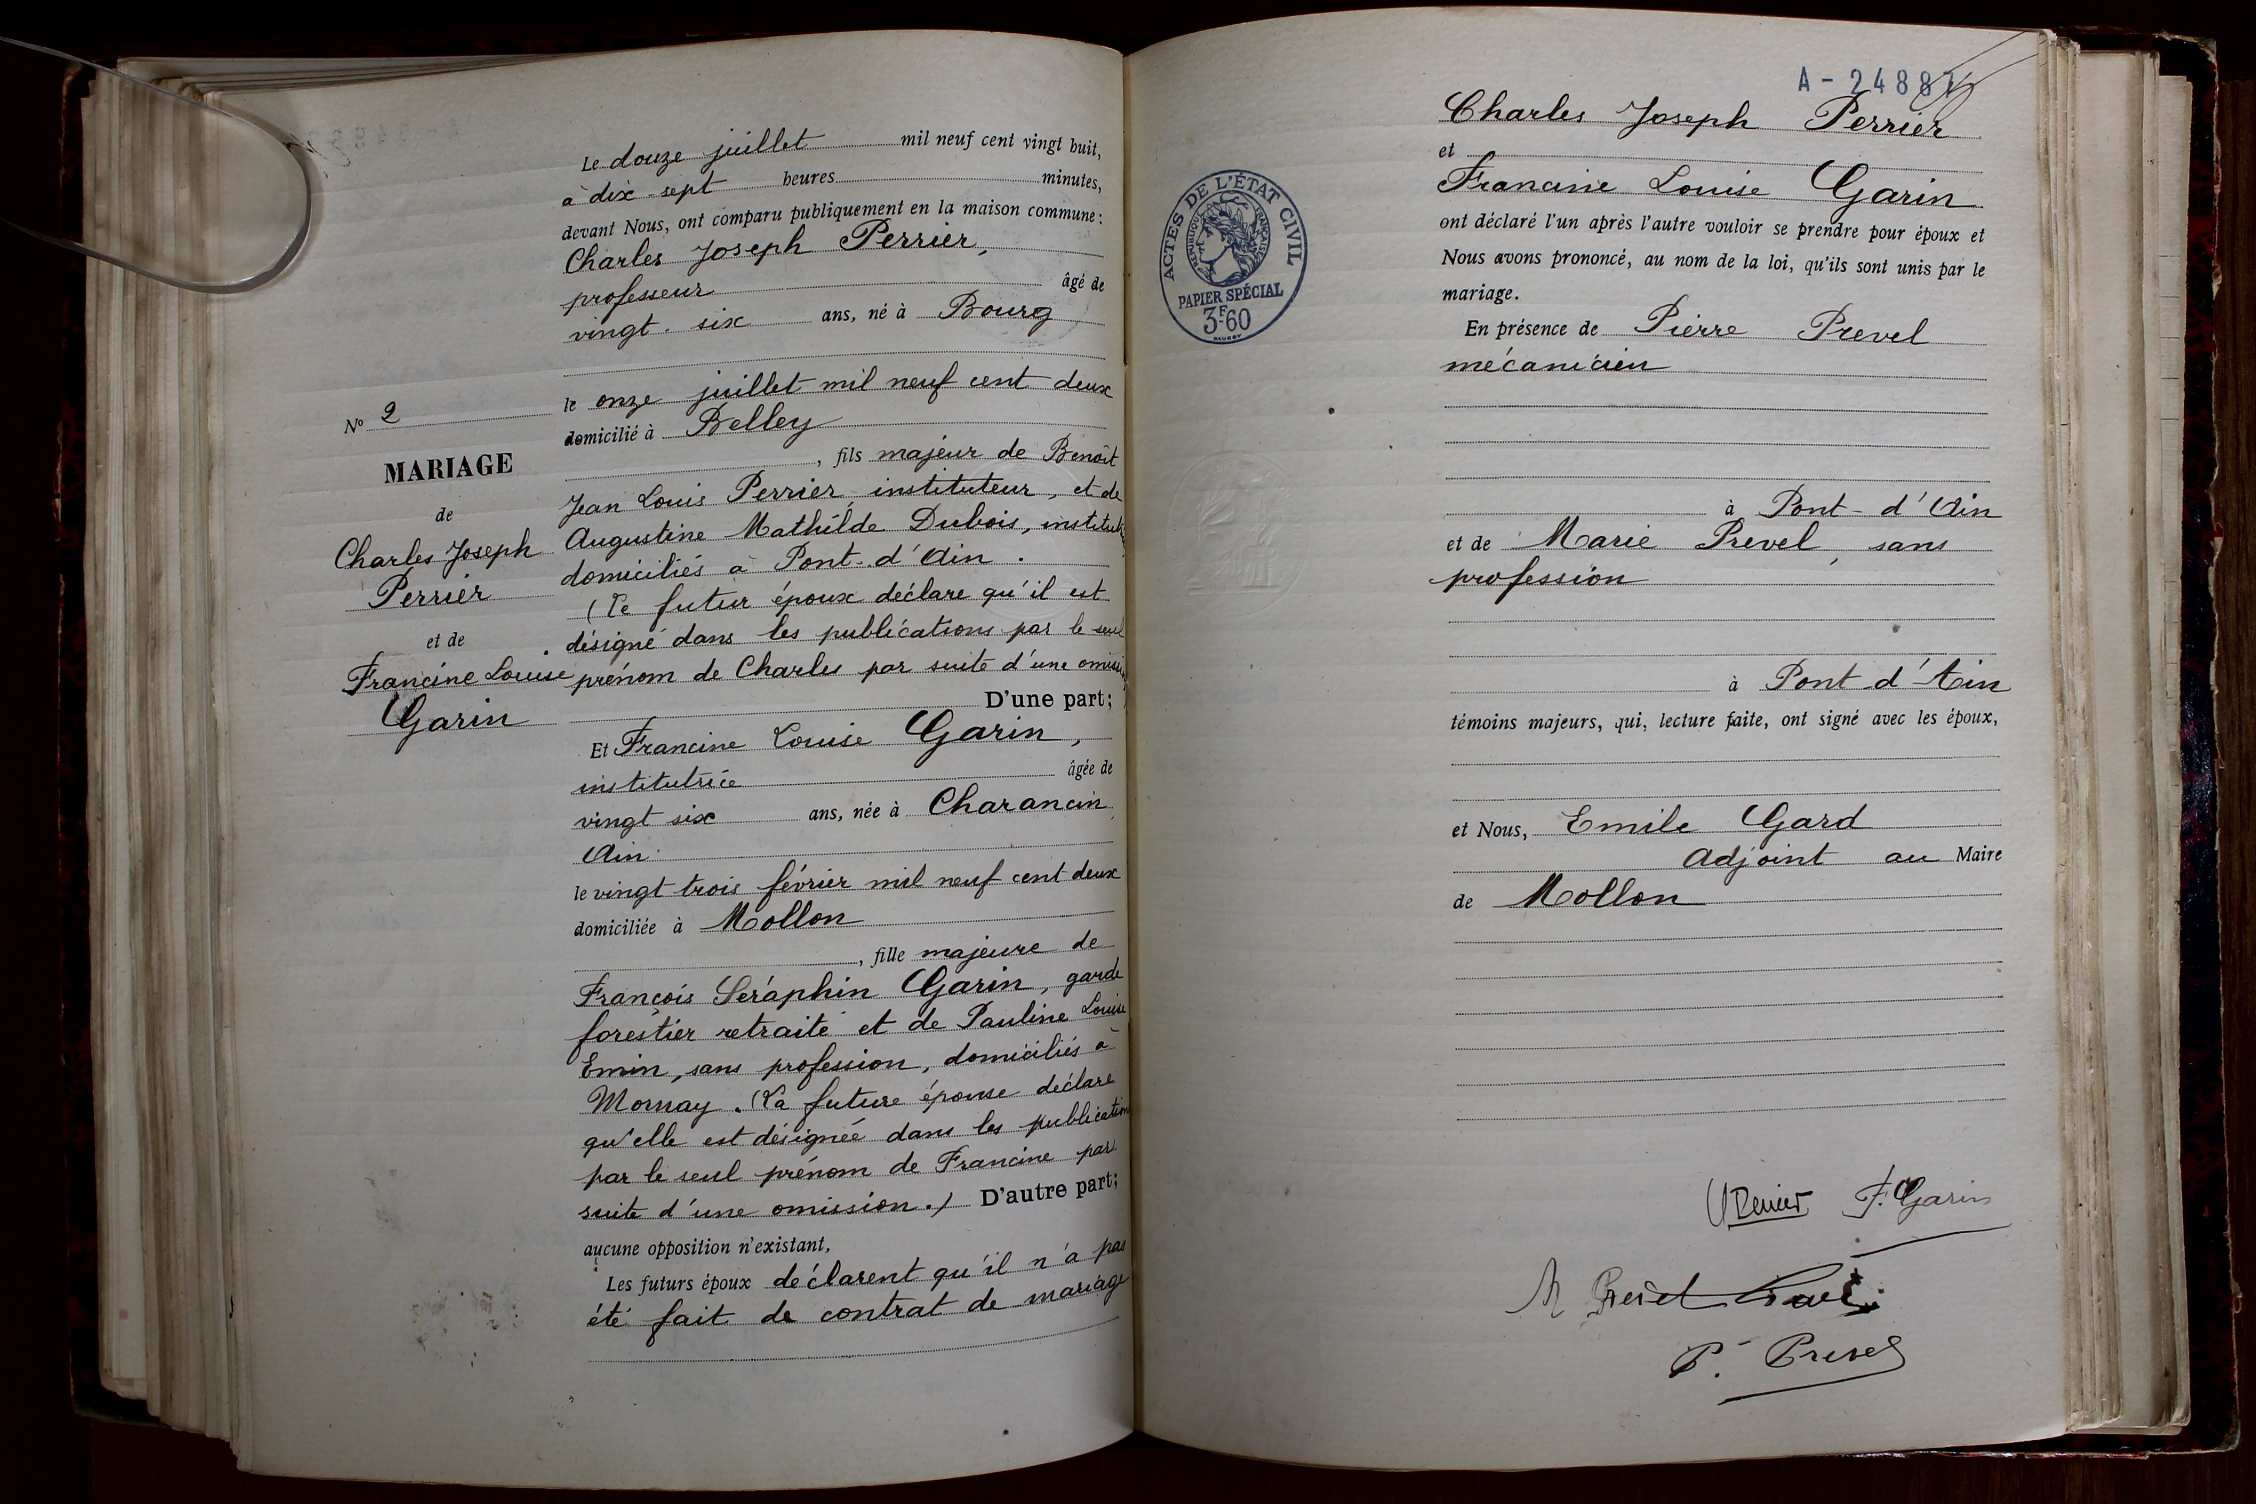 Le douze juillet mil neuf cent vingt huit,
à dix-sept heures minutes,
devant Nous, ont comparu publiquement en la maison commune :
Charles Joseph Perrier,
professeur âgé de
vingt-six ans, né à Bourg
le onze juillet mil neuf cent deux
domicilié à Belley
, fils majeur de Benoît
Jean Louis Perrier instituteur, et de
Augustine Mathilde Dubois,
domiciliés à Pont-d'Ain.
(Le futur époux déclare qu'il est
désigné dans les publications par le seul
prénom de Charles par suite d'une
D'une part;
Et Francine Louise Garin,
institutrice âgée de
vingt six ans, née à Charancin
Ain
le vingt trois février mil neuf cent deux
domiciliée à Mollon
, fille majeure de
François Séraphin Garin, garde
forestier retraité et de Pauline Louise
Emin, sans profession, domiciliés à
Mornay. (La future épouse déclare
qu'elle est désignée dans les publications
par le seul prénom de Francine par
suite d'une omission.) D'autre part;
aucune opposition n'existant,
Les futurs époux déclarent qu'il n'a pas
été fait de contrat de mariage
N° 2
MARIAGE
de
Charles Joseph
Perrier
et de
Francine Louise
Garin
A-24887
Charles Joseph Perrier
et
Francine Louise Garin
ont déclaré l'un après l'autre vouloir se prendre pour époux et
Nous avons prononcé, au nom de la loi, qu'ils sont unis par le
mariage.
En présence de Pierre Prevel
mécanicien
à Pont-d'Ain
et de Marie Prevel, sans
profession
à Pont-d'Ain
témoins majeurs, qui, lecture faite, ont signé avec les époux,
et Nous, Emile Gard
Adjoint au Maire
de Mollon
F. Garin
P. Prevel
ACTES DE L'ÉTAT CIVIL
RÉPUBLIQUE FRANÇAISE
PAPIER SPÉCIAL
3F60